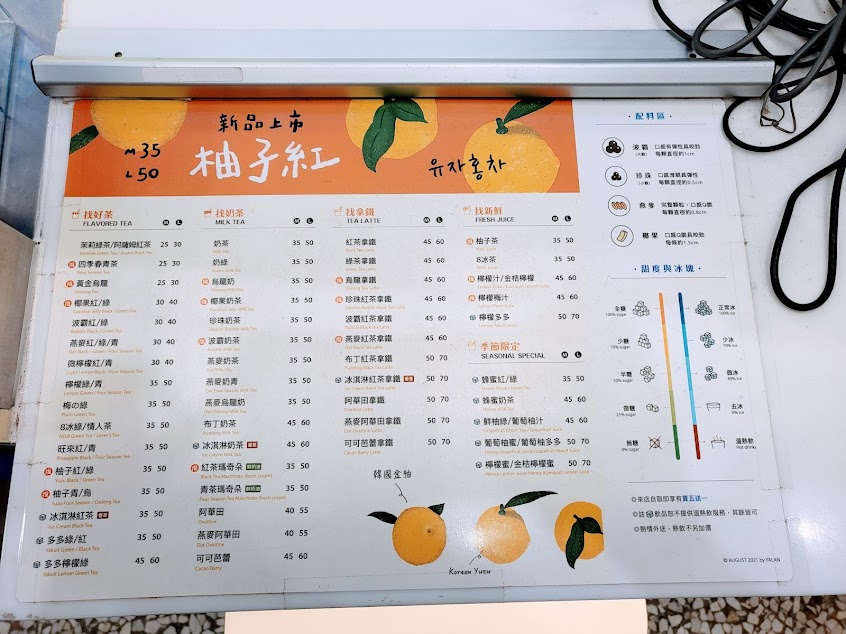 新品上市
M 35
L 50
柚子紅
유자홍차
找好茶 M L
FLAVORED TEA
茉莉綠茶/阿薩姆紅茶 25 30
四季春青茶 25 30
黃金烏龍 25 30
Oolong Tea
椰果紅/綠 30 40
Coconut Jelly Black / Green Tea
波霸紅/綠 30 40
Bubble Black / Green Tea
燕麥紅/綠/青 30 40
Oat Black / Green / Four Season Tea
微檸檬紅/青 30 40
Light Lemon Black / Four Season Tea
檸檬綠/青 35 50
Lemon Green / Four Season Tea
梅の綠 35 50
Plum Green Tea
8冰綠/情人茶 35 50
旺來紅/青 35 50
Pineapple Black / Four Season Tea
柚子紅/綠 35 50
Yuzu Black / Green Tea
柚子青/烏 35 50
Yuzu Four Season / Oolong Tea
冰淇淋紅茶 35 50
Ice Cream Black Tea
多多綠/紅 35 50
Yakult Green / Black Tea
多多檸檬綠 45 60
Yakult Lemon Green Tea
找奶茶 M L
MILK TEA
奶茶 35 50
奶綠 35 50
烏龍奶 35 50
椰果奶茶 35 50
珍珠奶茶 35 50
波霸奶茶 35 50
燕麥奶茶 35 50
燕麥奶青 35 50
燕麥烏龍奶 35 50
布丁奶茶 45 60
冰淇淋奶茶 45 60
Ice Cream Milk Tea
紅茶瑪奇朵 35 50
Black Tea Macchiato (fresh cream)
青茶瑪奇朵 35 50
Four Season Tea Macchiato (fresh cream)
阿華田 40 55
Ovaltine
燕麥阿華田 40 55
Oat Ovaltine
可可芭蕾 45 60
Cacao Barry
找拿鐵 M L
TEA LATTE
紅茶拿鐵 45 60
綠茶拿鐵 45 60
烏龍拿鐵 45 60
珍珠紅茶拿鐵 45 60
波霸紅茶拿鐵 45 60
燕麥紅茶拿鐵 45 60
布丁紅茶拿鐵 50 70
冰淇淋紅茶拿鐵 50 70
阿華田拿鐵 50 70
燕麥阿華田拿鐵 50 70
可可芭蕾拿鐵 50 70
找新鮮 M L
FRESH JUICE
柚子茶 35 50
8冰茶 35 50
檸檬汁/金桔檸檬 45 60
檸檬梅汁 45 60
檸檬多多 50 50
季節限定 M L
SEASONAL SPECIAL
蜂蜜紅/綠 35 50
蜂蜜奶茶 45 60
鮮柚綠/葡萄柚汁 45 60
葡萄柚蜜/葡萄柚多多 50 70
檸檬蜜/金桔檸檬蜜 50 70
韓國金柚
Korean Yuzu
·配料區·
波霸
(大顆)
口感有彈性具咬勁
每顆直徑約1cm
珍珠
(小顆)
口感滑順具彈性
每顆直徑約0.5cm
燕麥
完整顆粒,口感Q脆
每顆直徑約0.8cm
椰果
口感Q脆具咬勁
每條約1.5cm
·甜度與冰塊·
全糖
100% sugar
正常冰
100% ice
少糖
70% sugar
少冰
70% ice
半糖
50% sugar
微冰
微糖
去冰
0% ice
無糖
0% sugar
溫熱飲
Hot drinks
◎來店自取即享有買五送一
◎註 飲品恕不提供溫熱飲服務,其餘皆可
◎熱情外送,熱飲不另加價
© AUGUST 2021 by YALAN